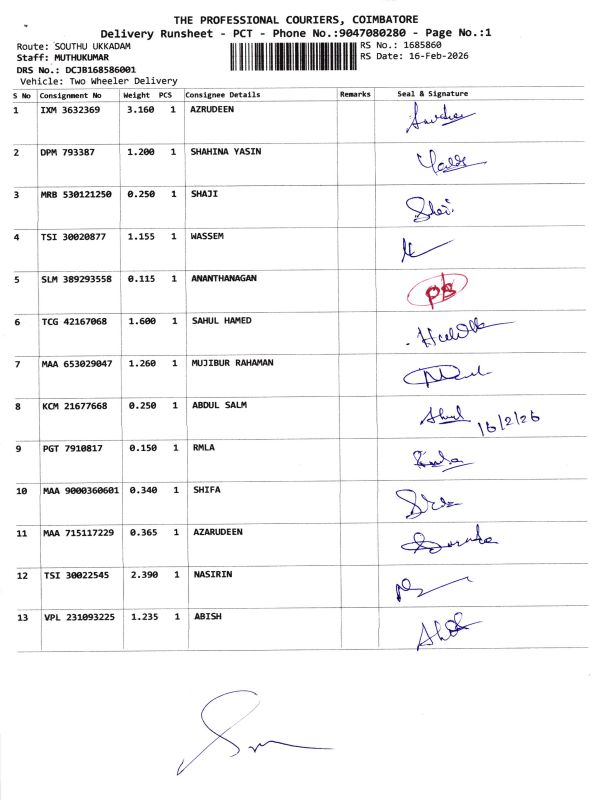 THE PROFESSIONAL COURIERS, COIMBATORE
Delivery Runsheet - PCT - Phone No.:9047080280 - Page No.:1
Route: SOUTHU UKKADAM
RS No.: 1685860
Staff: MUTHUKUMAR
RS Date: 16-Feb-2026
DRS No.: DCJB168586001
Vehicle: Two Wheeler Delivery
S No Consignment No Weight PCS Consignee Details Remarks Seal & Signature
1 IXM 3632369 3.160 1 AZRUDEEN
2 DPM 793387 1.200 1 SHAHINA YASIN
3 MRB 530121250 0.250 1 SHAJI
4 TSI 30020877 1.155 1 WASSEM
5 SLM 389293558 0.115 1 ANANTHANAGAN
6 TCG 42167068 1.600 1 SAHUL HAMED
7 MAA 653029047 1.260 1 MUJIBUR RAHAMAN
8 KCM 21677668 0.250 1 ABDUL SALM 16/2/26
9 PGT 7910817 0.150 1 RMLA
10 MAA 9000360601 0.340 1 SHIFA
11 MAA 715117229 0.365 1 AZARUDEEN
12 TSI 30022545 2.390 1 NASIRIN
13 VPL 231093225 1.235 1 ABISH